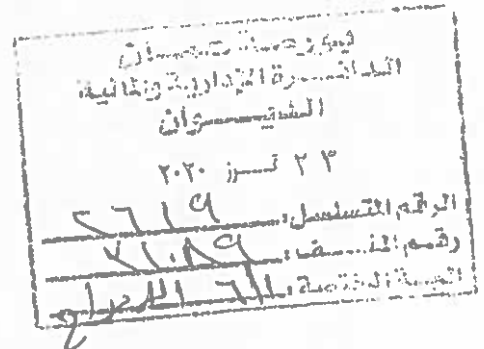 بورصة عمان
الدائرة الإدارية والمالية
الديوان
٢٣ تموز ٢٠٢٠
الرقم المتسلسل: ٢٦١٩
رقم الملف:
الجهة المختصة: